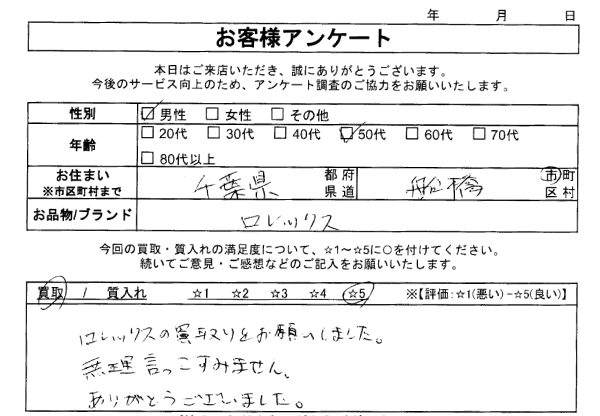 年 月 日
お客様アンケート
本日はご来店いただき、誠にありがとうございます。
今後のサービス向上のため、アンケート調査のご協力をお願いいたします。
性別 ☑ 男性 □ 女性 □ その他
年齢 □ 20代 □ 30代 □ 40代 ☑ 50代 □ 60代 □ 70代
□ 80代以上
お住まい ※市区町村まで 千葉県 都府県道 船橋 市町区村
お品物/ブランド ロレックス
今回の買取・質入れの満足度について、☆1～☆5に○を付けてください。
続いてご意見・ご感想などのご記入をお願いいたします。
買取 / 質入れ ☆1 ☆2 ☆3 ☆4 ☆5 ※【評価:☆1(悪い)-☆5(良い)】
ロレックスの買取りをお願いしました。
無理言ってすみません、
ありがとうございました。